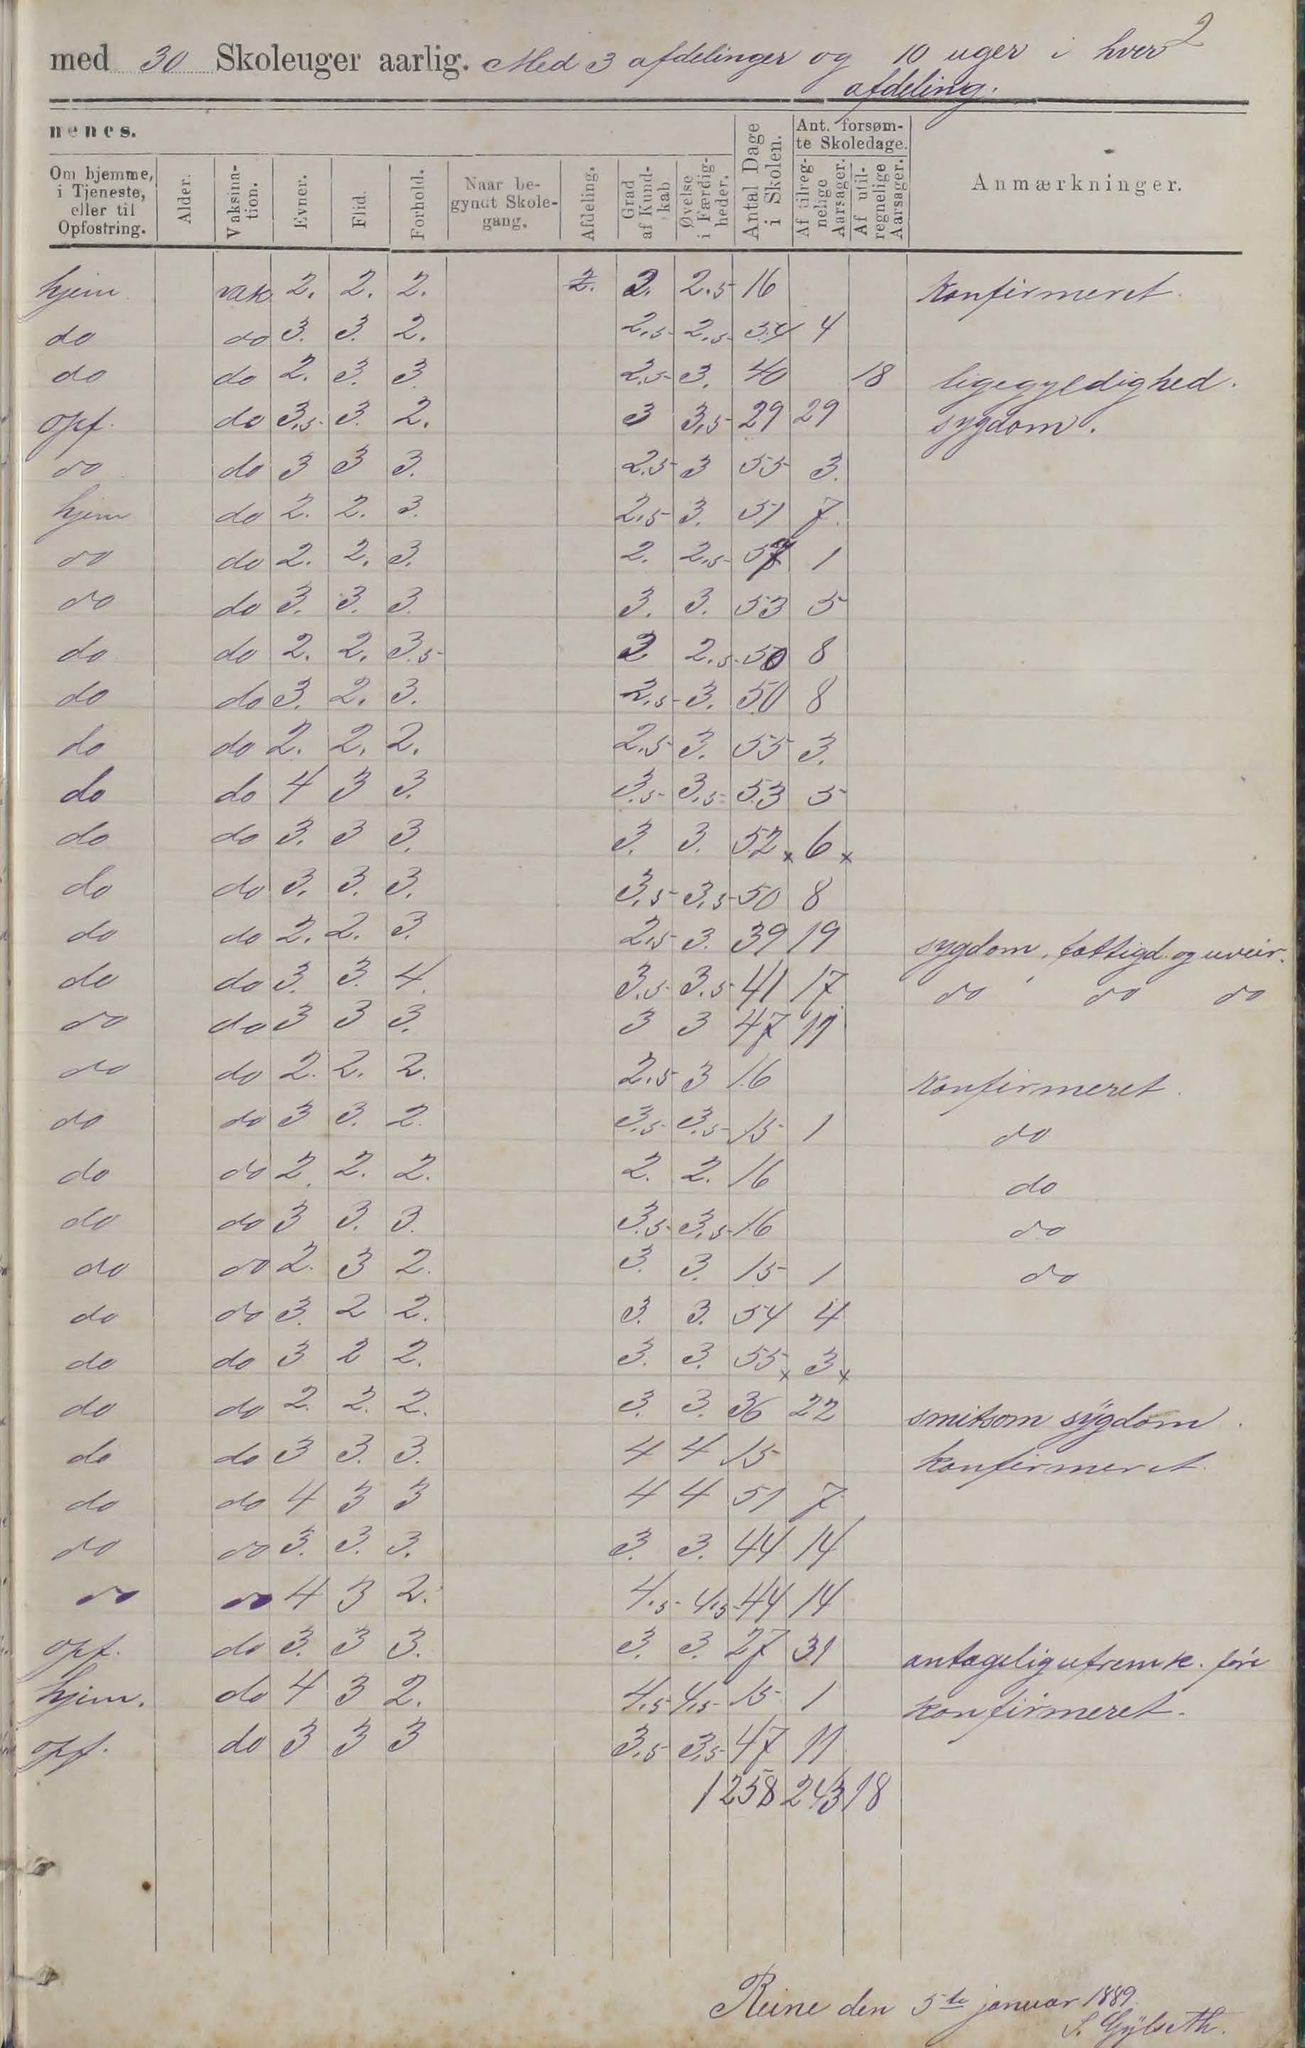 2
med 30 Skoleuger aarlig. Med 3 afdelinger og 10 uger i hver
afdeling.
nenes.
Om hjemme, i Tjeneste, eller til Opfostring. Alder. Vaksination. Evner. Flid. Forhold. Naar begyndt Skolegang. Afdeling. Grad af Kundskab. Øvelse i Færdigheder. Antal Dage i Skolen. Ant. forsømte Skoledage. Af tilregnelige Aarsager. Af utilregnelige Aarsager. Anmærkninger.
hjem vak 2. 2. 2. 2. 2. 2.5 16 Konfirmeret.
do do 3. 3. 2. 2.5 2.5 54 4
do do 2. 3. 3. 2.5 3. 40 18 ligegyldighed.
opf. do 3.5 3. 2. 3 3.5 29 29 sygdom.
do do 3 3 3. 2.5 3 55 3.
hjem do 2. 2. 3. 2.5 3. 51 7.
do do 2. 2. 3. 2. 2.5 57 1
do do 3. 3. 3. 3. 3. 53 5
do do 2. 2. 3.5 2 2.5 50 8
do do 3. 2. 3. 2.5 3. 50 8
do do 2. 2. 2. 2.5 3. 55 3.
do do 4 3 3. 3.5 3.5 53 5
do do 3. 3 3. 3. 3. 52 x 6 x
do do 3. 3. 3. 3.5 3.5 50 8
do do 2. 2. 3. 2.5 3. 39 19 sygdom, fattigd. og uveir.
do do 3. 3. 4. 3.5 3.5 41 17 do do do
do do 3 3 3. 3 3 47 11
do do 2. 2. 2. 2.5 3 16 Konfirmeret.
do do 3 3. 2. 3.5 3.5 15 1 do
do do 2. 2. 2. 2. 2. 16 do
do do 3 3. 3. 3.5 3.5 16 do
do do 2. 3 2. 3. 3. 15 1 do
do do 3. 2 2. 3. 3. 54 4
do do 3 2 2. 3. 3. 55 x 3 x
do do 2. 2. 2. 3. 3. 36 22 smitsom sygdom.
do do 3 3. 3. 4 4 15 konfirmeret.
do do 4 3 3 4 4 51 7
do do 3. 3. 3. 3. 3. 44 14
do do 4 3 2. 4.5 4.5 44 14
opf. do 3. 3 3. 3. 3. 27 31 antagelig
hjem. do 4 3 2. 4.5 4.5 15 1 konfirmeret.
opf. do 3 3 3 3.5 3.5 47 11
1258 243 18
Reine den 5te januar 1889.
S. Gylseth.